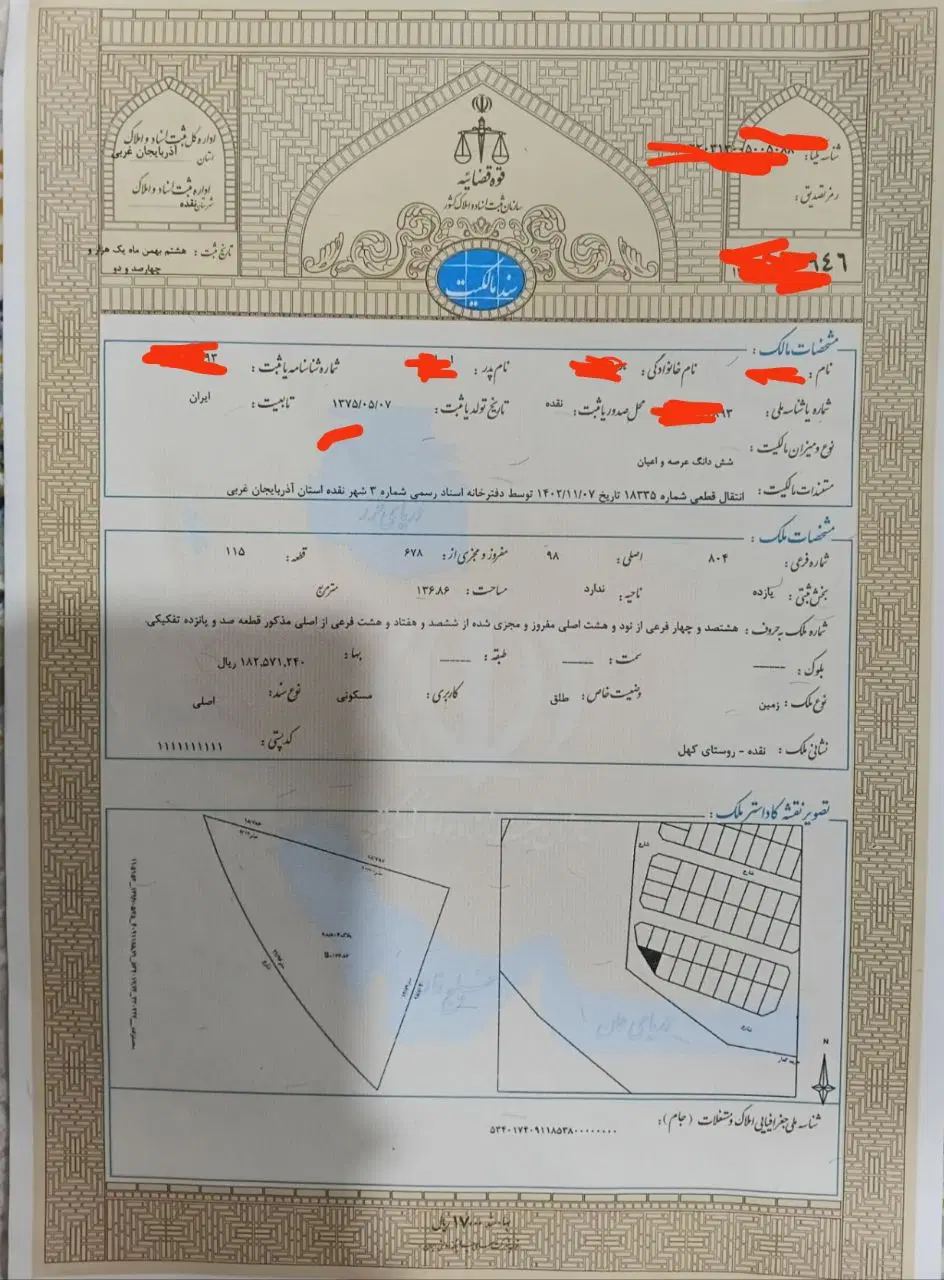 قوه قضائیه
سازمان ثبت اسناد و املاک کشور
سند مالکیت
اداره کل ثبت اسناد و املاک
استان آذربایجان غربی
اداره ثبت اسناد و املاک
شهرستان نقده
تاریخ ثبت : هشتم بهمن ماه یک هزار و
چهارصد و دو
شناسه یکتا :
رمز تصدیق :
۶۴۶
مشخصات مالک :
نام : نام خانوادگی : نام پدر : شماره شناسنامه یا ثبت : ۹۳
شماره یا شناسه ملی : ۹۳ محل صدور یا ثبت : نقده تاریخ تولد یا ثبت : ۱۳۷۵/۰۵/۰۷ تابعیت : ایران
نوع و میزان مالکیت : شش دانگ عرصه و اعیان
مستندات مالکیت : انتقال قطعی شماره ۱۸۳۳۵ تاریخ ۱۴۰۲/۱۱/۰۷ توسط دفترخانه اسناد رسمی شماره ۳ شهر نقده استان آذربایجان غربی
مشخصات ملک :
شماره فرعی : ۸۰۴ اصلی : ۹۸ مفروز و مجزی از : ۶۷۸ قطعه : ۱۱۵
بخش ثبتی : یازده ناحیه : ندارد مساحت : ۱۳۶.۸۶ مترمربع
شماره ملک به حروف : هشتصد و چهار فرعی از نود و هشت اصلی مفروز و مجزی شده از ششصد و هفتاد و هشت فرعی از اصلی مذکور قطعه صد و پانزده تفکیکی.
بلوک : ــــــ سمت : ــــــ طبقه : ــــــ بها : ۱۸۲,۵۷۱,۲۴۰ ریال
نوع ملک : زمین وضعیت خاص : طلق کاربری : مسکونی نوع سند : اصلی
نشانی ملک : نقده - روستای کهل کد پستی : ۱۱۱۱۱۱۱۱۱۱
تصویر نقشه کاداستر ملک :
شارع
شارع
شارع
N
شناسه ملی جغرافیایی املاک و مستغلات (جام) : ۵۳۴۰۱۷۴۰۹۱۱۸۵۳۸۰۰۰۰۰۰۰۰
بهاء سند ۱۷۰۰۰ ریال